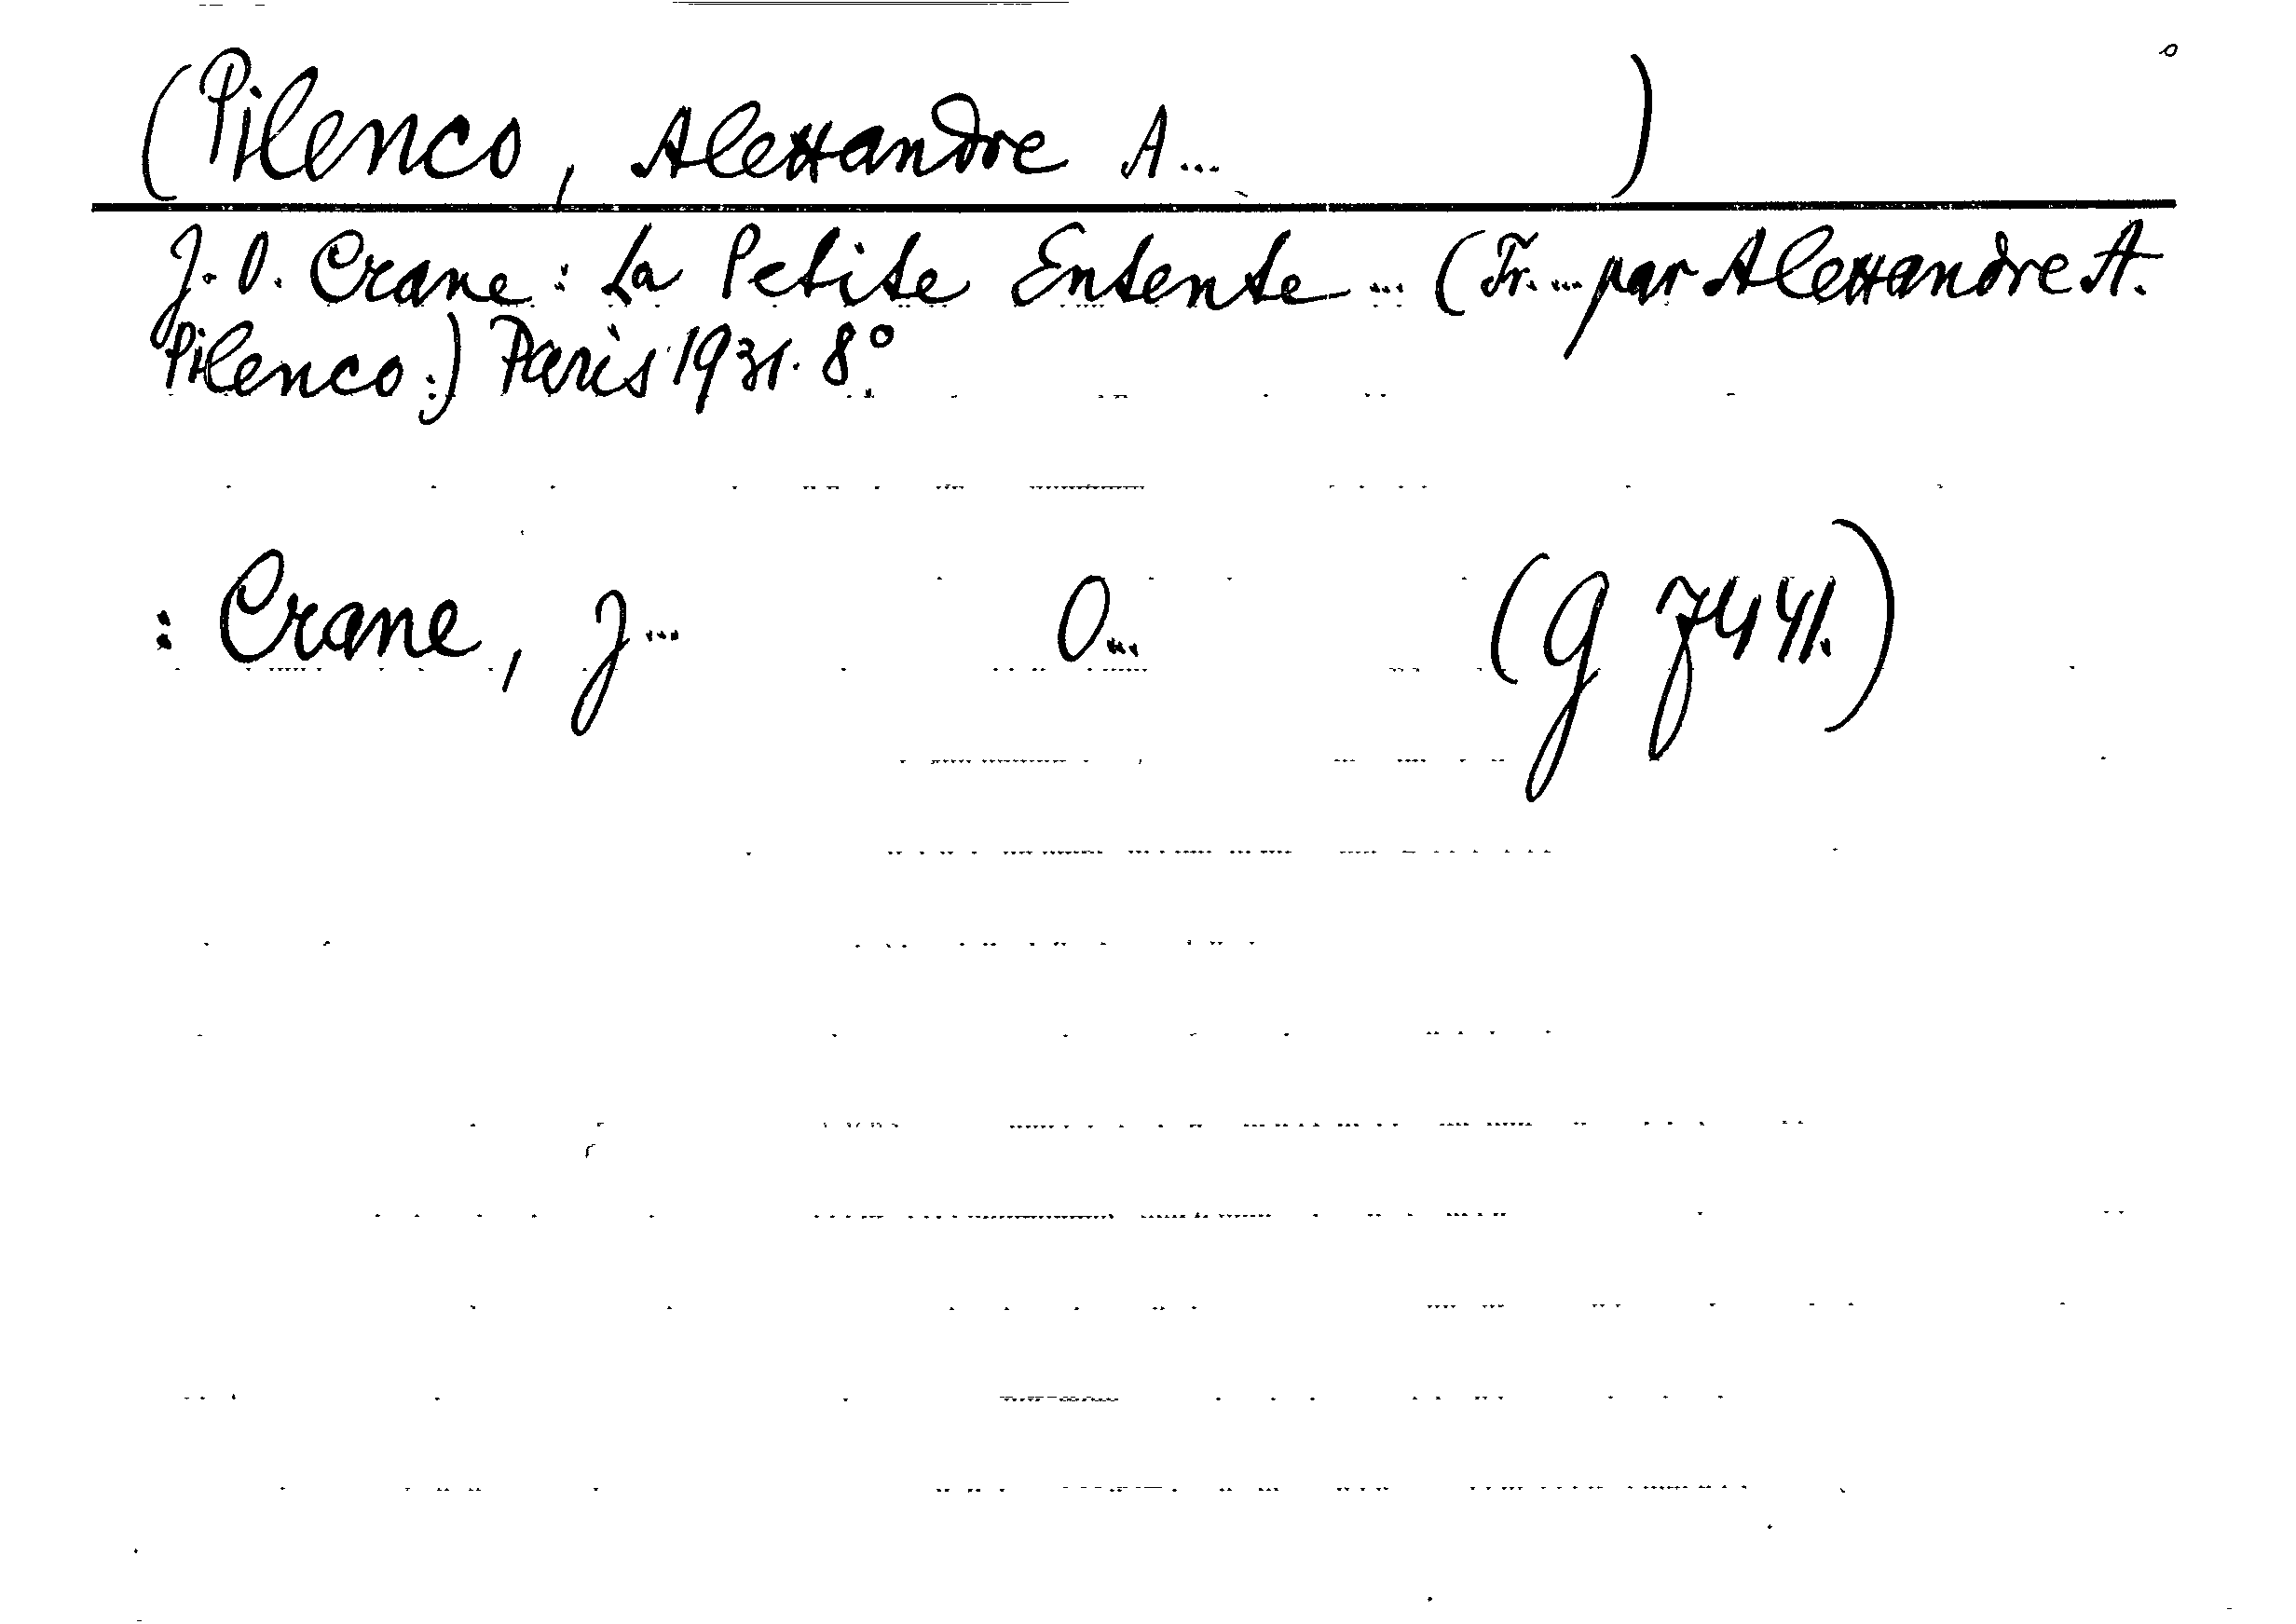 (Pilenco, Alexandre A... )
J. O. Crane: La Petite Entente ... (Tr. ... par Alexandre A.
Pilenco:) Paris 1931. 8°.
: Crane, J... O... (G 7441.)